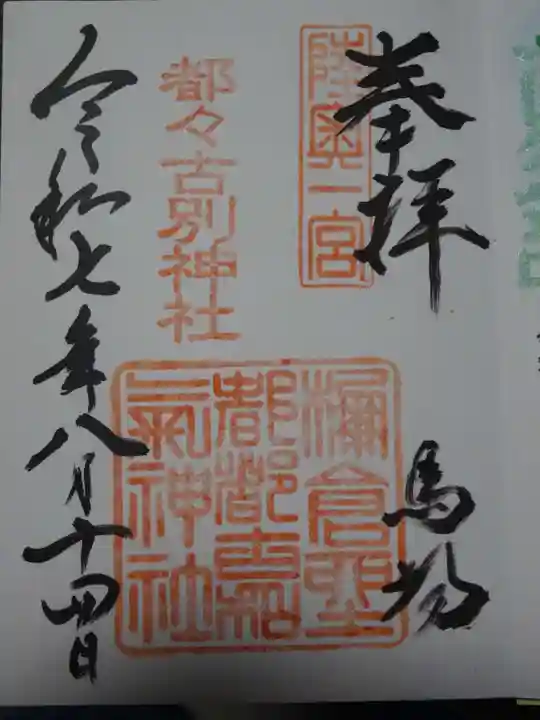 奉拝
陸奥一宮
馬場
都々古別神社
都都古
氣神社
令和七年八月十四日